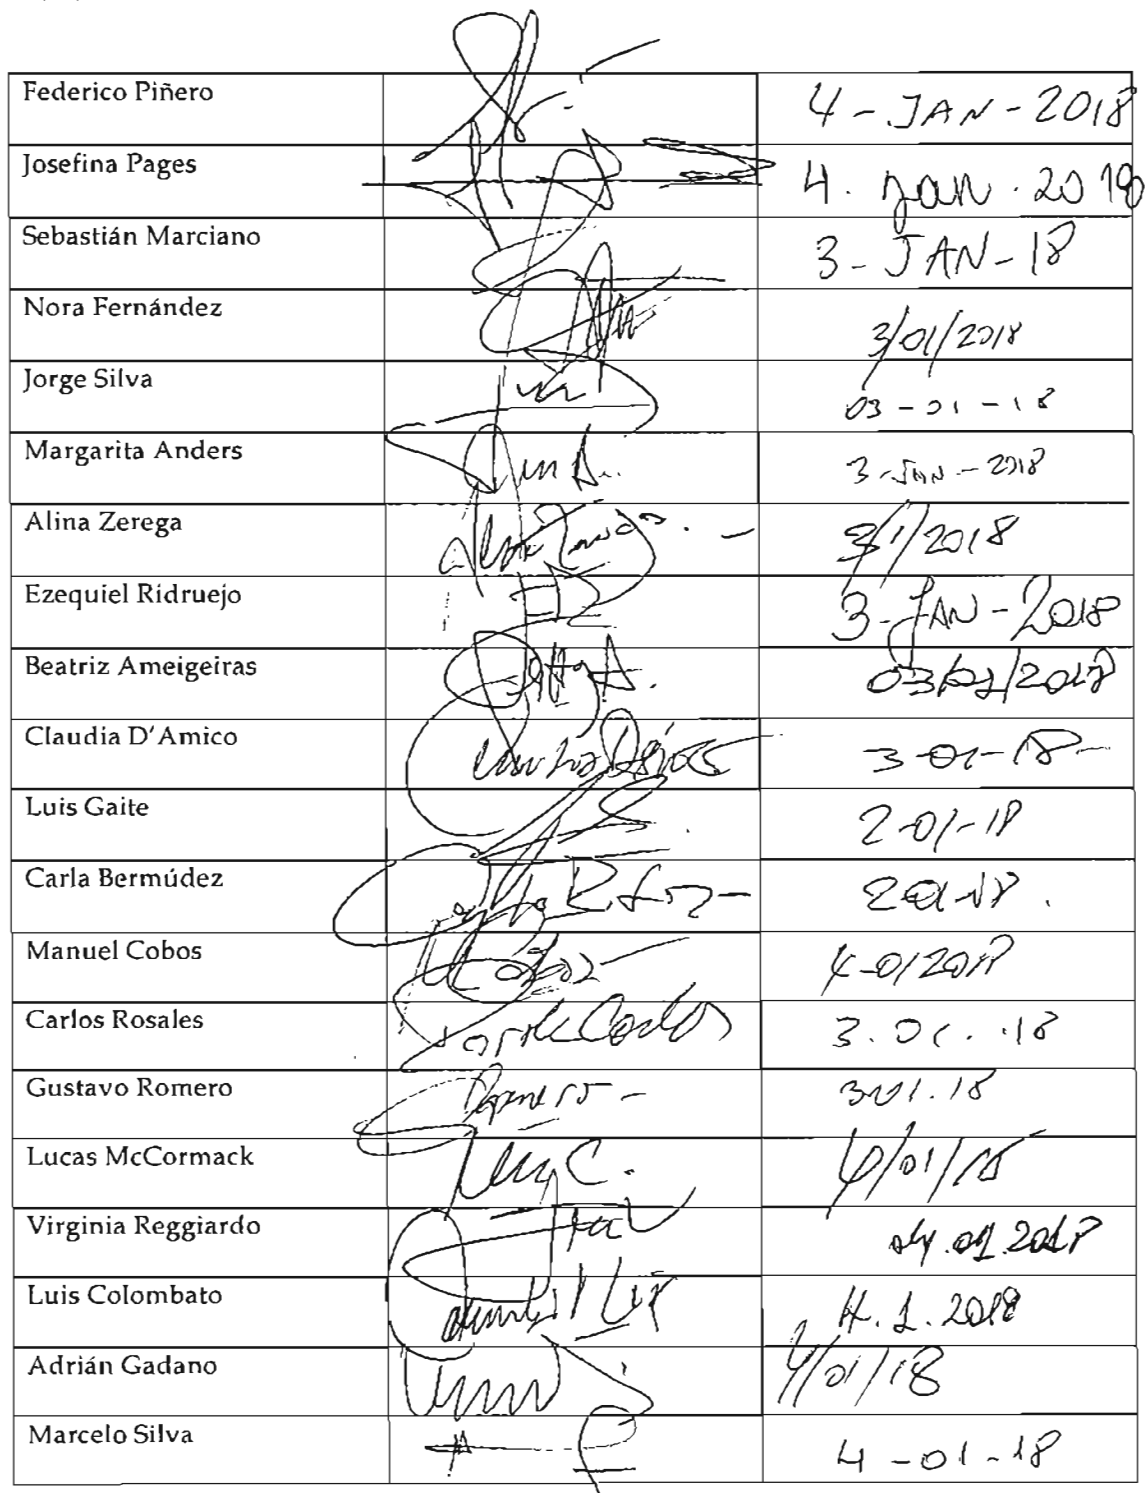 Federico Piñero 4 - JAN - 2018
Josefina Pages 4. Jan. 2018
Sebastián Marciano 3 - JAN - 18
Nora Fernández 3/01/2018
Jorge Silva 03 - 01 - 18
Margarita Anders 3 - JAN - 2018
Alina Zerega 3/1/2018
Ezequiel Ridruejo 3 - JAN - 2018
Beatriz Ameigeiras 03/01/2018
Claudia D'Amico 3-01-18-
Luis Gaite 2-01-18
Carla Bermúdez 2-01-18.
Manuel Cobos Cobos 4-01 2018
Carlos Rosales Carlos 3.01.18
Gustavo Romero Romero - 3.01.18
Lucas McCormack 4/01/18
Virginia Reggiardo 04.01.2018
Luis Colombato 4.1.2018
Adrián Gadano 4/01/18
Marcelo Silva 4-01-18